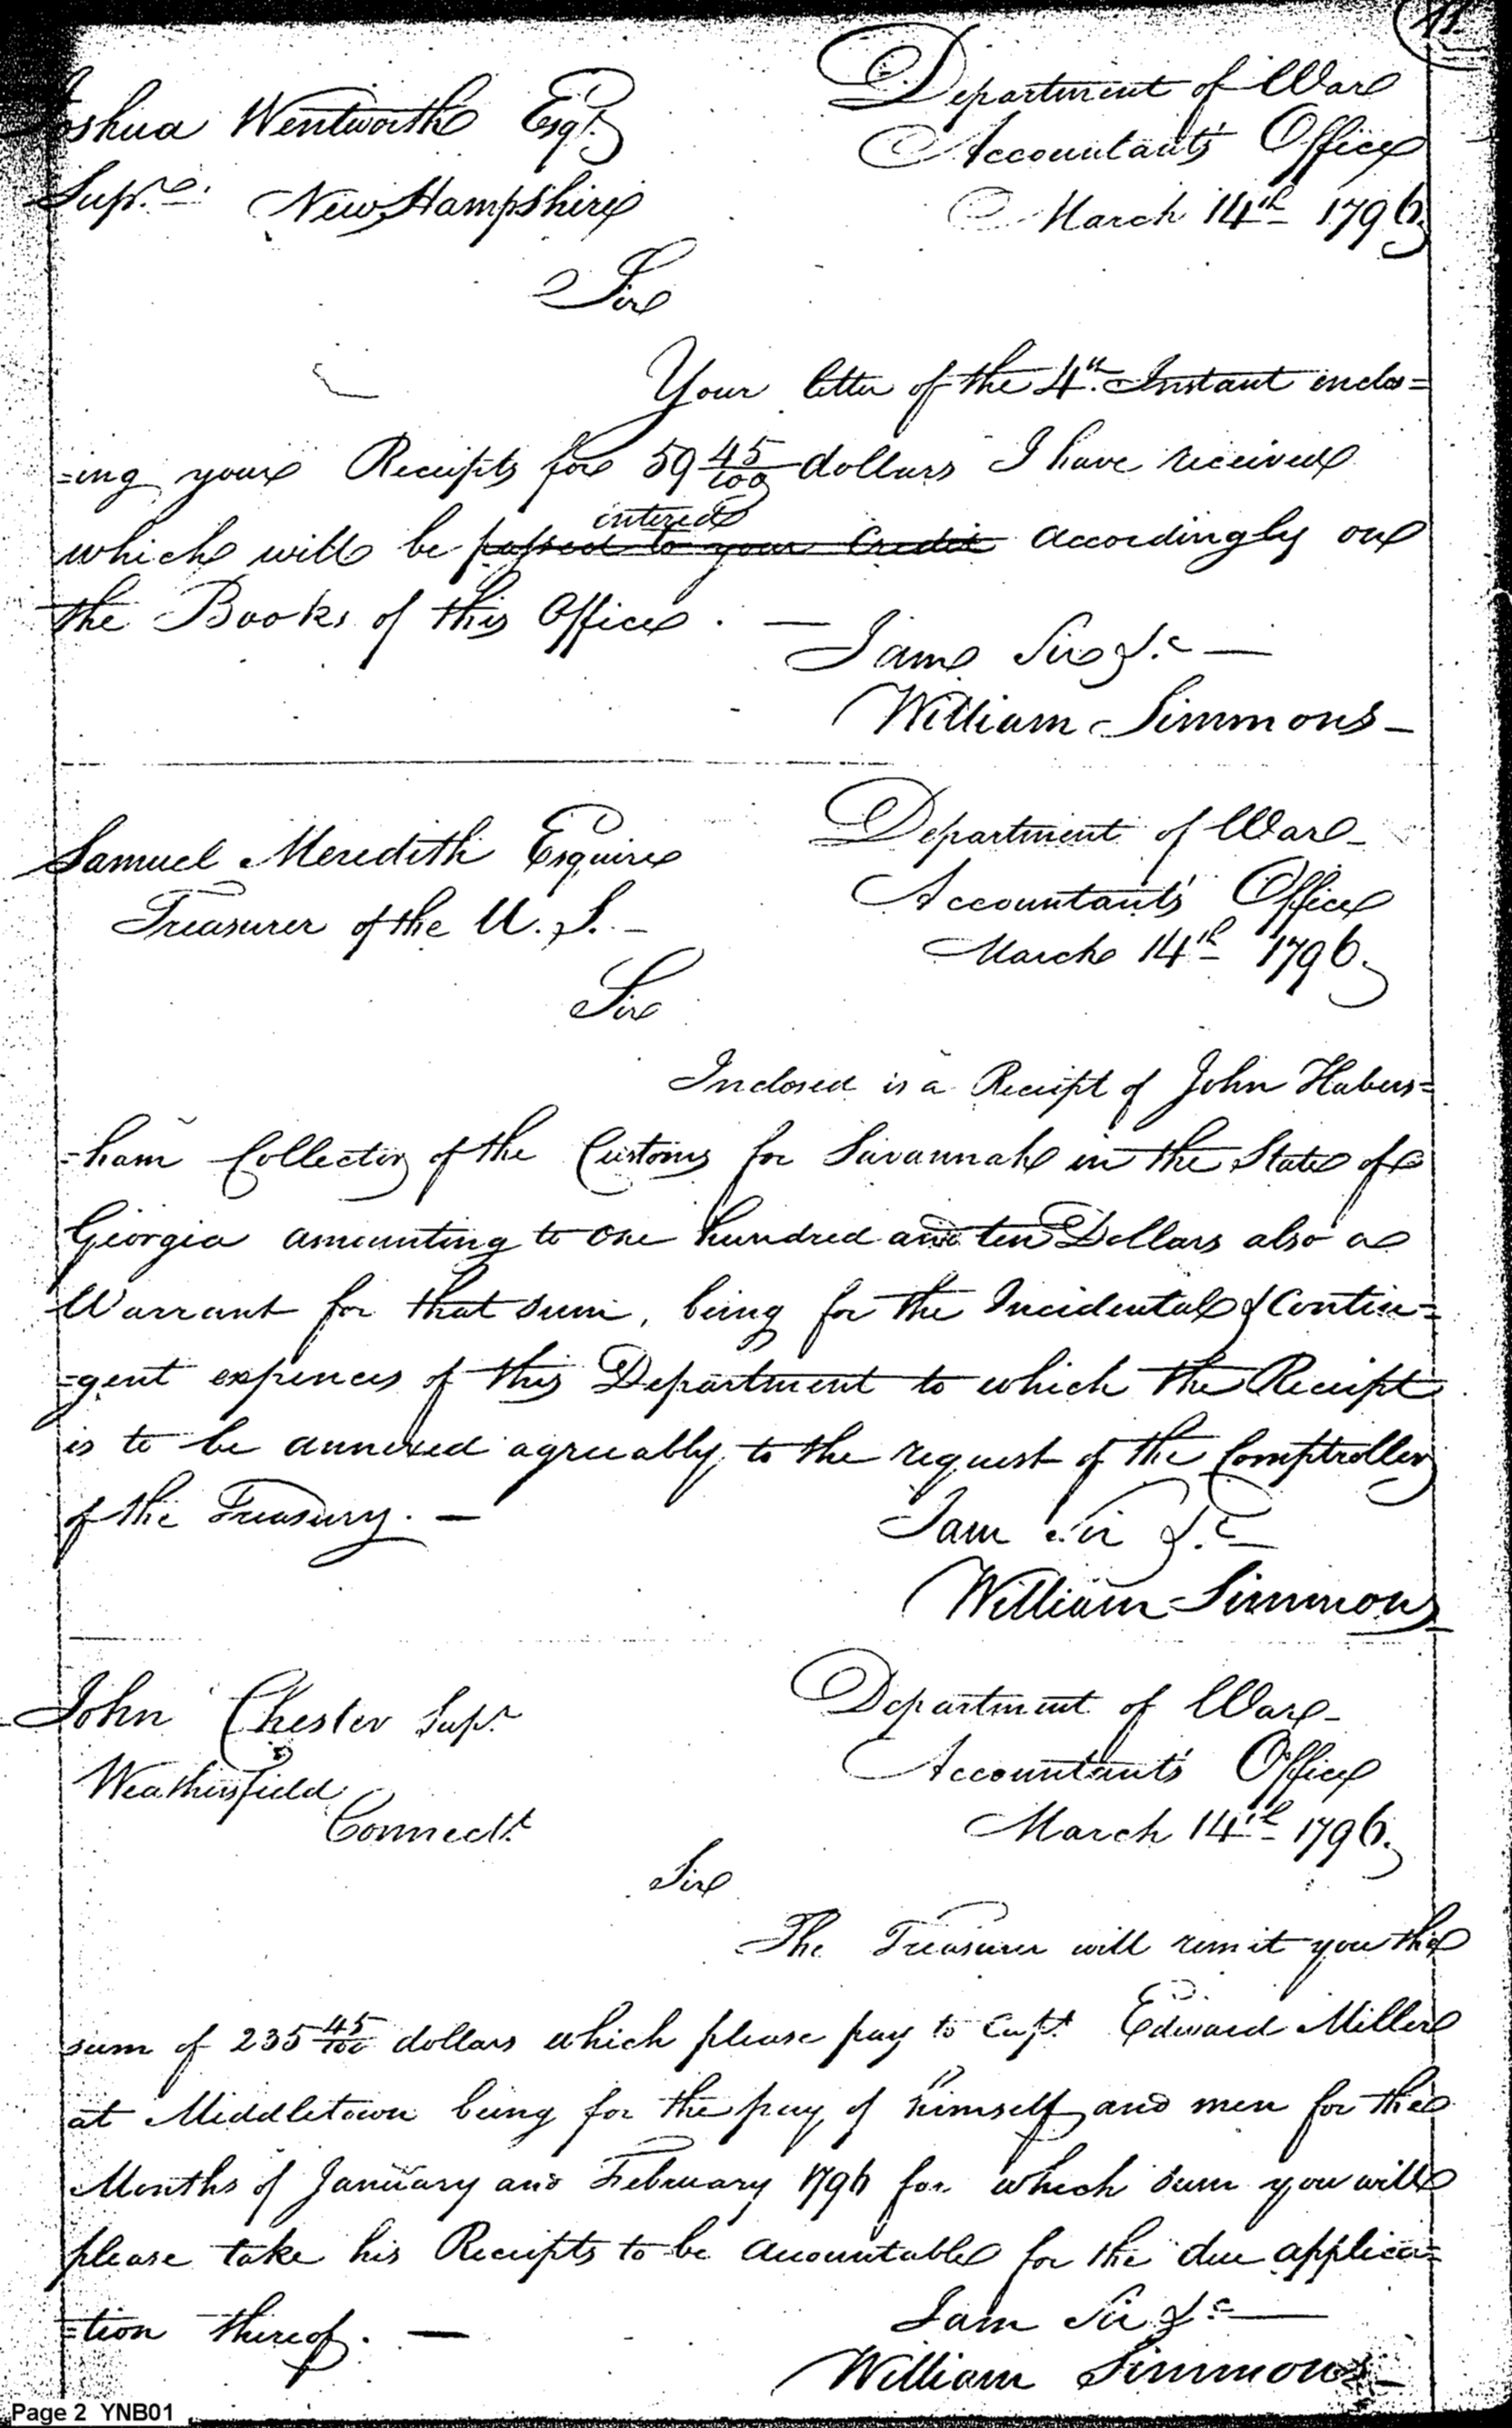 11.
Joshua Wentworth Esqr.
Supr. New Hampshire
Department of War
Accountant's Office
March 14th 1796
Sir
Your letter of the 4th. Instant enclos=
=ing your Receipts for 59 45/100 dollars I have received
entered
which will be passed to your Credit accordingly on
the Books of this Office. —
I am Sir &c —
William Simmons —
Samuel Meredith Esquire
Treasurer of the U. S. —
Department of War —
Accountant's Office
March 14th 1796.
Sir
Inclosed is a Receipt of John Habers=
=ham Collector of the Customs for Savannah in the State of
Georgia amounting to one hundred and ten Dollars also a
Warrant for that sum, being for the Incidental & Contin=
=gent expences of this Department to which the Receipt
is to be annexed agreeably to the request of the Comptroller
of the Treasury. —
I am Sir &c
William Simmons
John Chester Supr
Weathersfield
Connectt.
Department of War —
Accountant's Office
March 14th 1796.
Sir
The Treasurer will remit you the
sum of 235 45/100 dollars which please pay to Capt. Edward Miller
at Middletown being for the pay of himself and men for the
Months of January and February 1796 for which sum you will
please take his Receipts to be accountable for the due applica=
=tion thereof. —
I am Sir &c —
William Simmons —
Page 2 YNB01